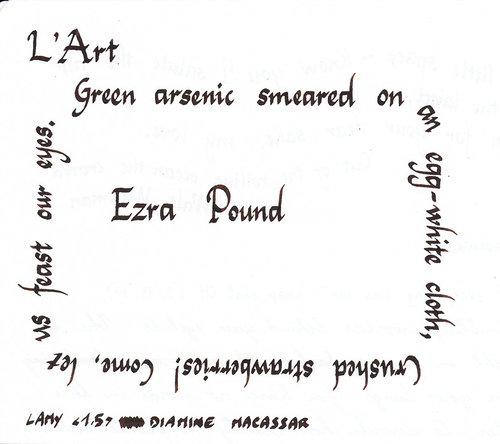 L'Art
Green arsenic smeared on
an egg-white cloth,
Crushed strawberries! Come, let
us feast our eyes.
Ezra Pound
LAMY «1.5» DIAMINE MACASSAR